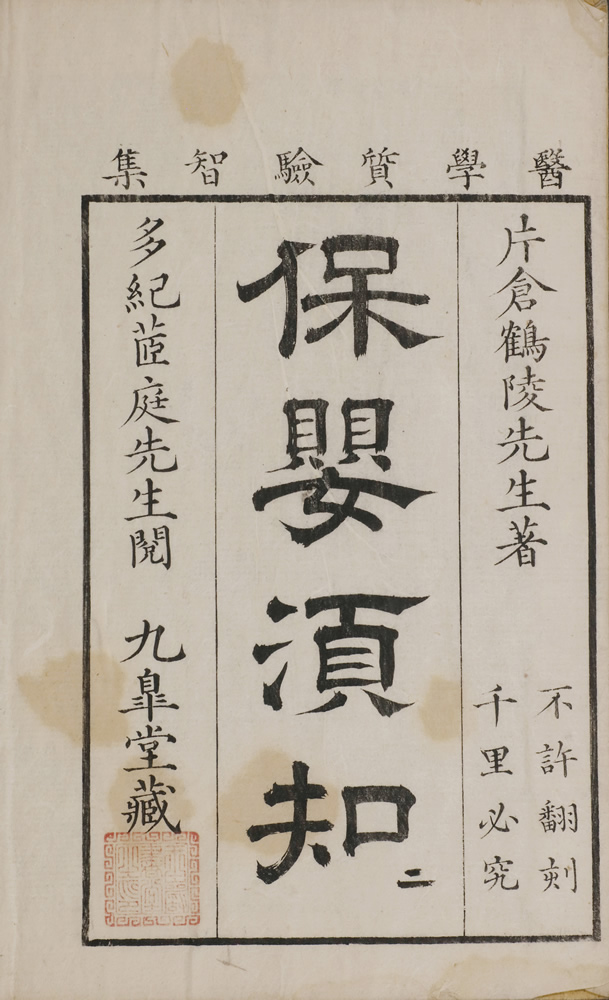 醫學質驗智集
片倉鶴陵先生著
不許翻刻
千里必究
保嬰須知
二
多紀茝庭先生閱
九皐堂藏